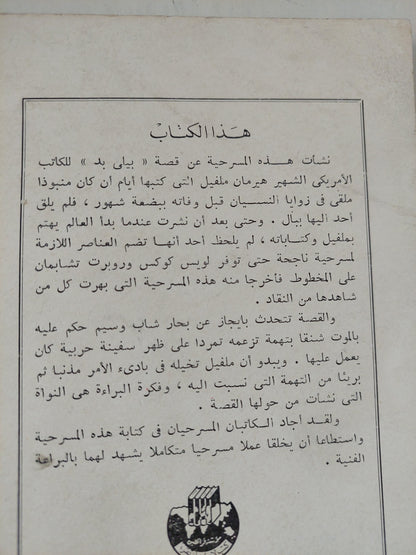 هذا الكتاب
نشأت هذه المسرحية عن قصة « بيلى بد » للكاتب
الأمريكى الشهير هيرمان ملفيل التى كتبها أيام أن كان منبوذا
ملقى فى زوايا النسيان قبل وفاته ببضعة شهور ، فلم يلق
أحد اليها ببال . وحتى بعد أن نشرت عندما بدأ العالم يهتم
بملفيل وكتاباته ، لم يلحظ أحد أنها تضم العناصر اللازمة
لمسرحية ناجحة حتى توفر لويس كوكس وروبرت تشابمان
على المخطوط فأخرجا منه هذه المسرحية التى بهرت كل من
شاهدها من النقاد .
والقصة تتحدث بايجاز عن بحار شاب وسيم حكم عليه
بالموت شنقا بتهمة تزعمه تمردا على ظهر سفينة حربية كان
يعمل عليها . ويبدو أن ملفيل تخيله فى بادىء الأمر مذنبا ثم
بريئا من التهمة التى نسبت اليه ، وفكرة البراءة هى النواة
التى نشأت من حولها القصة .
ولقد أجاد الكاتبان المسرحيان فى كتابة هذه المسرحية
واستطاعا أن يخلقا عملا مسرحيا متكاملا يشهد لهما بالبراعة
الفنية .